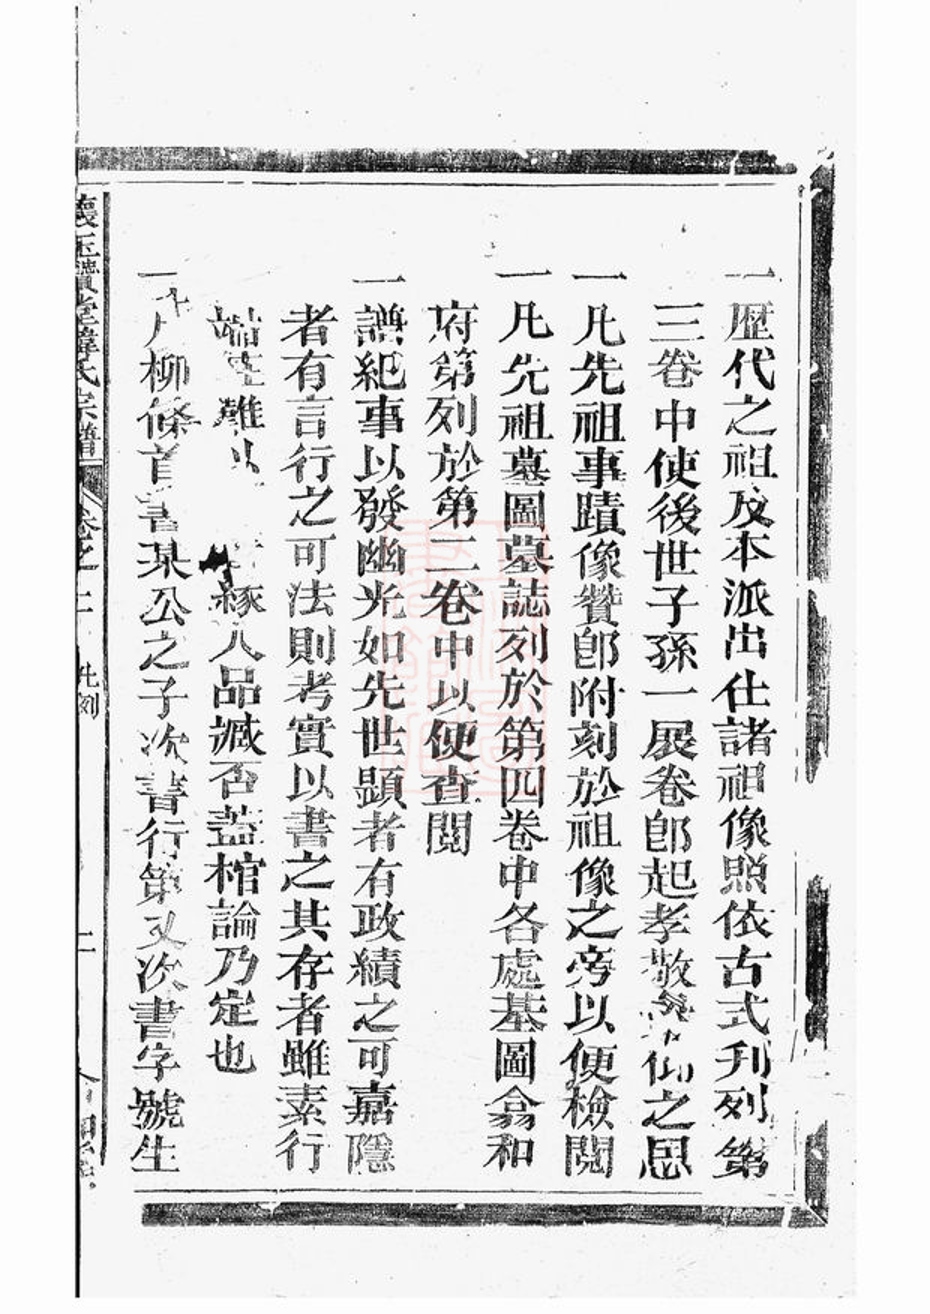 一歷代之祖及本派出仕諸祖像照依古式刋列第
三卷中使後世子孫一展卷卽起孝敬仰之思
一凡先祖事蹟像贊卽附刻於祖像之旁以便檢閱
一凡先祖墓圖墓誌列於第四卷中各處基圖翕和
府第列於第二卷中以便查閱
一譜紀事以發幽光如先世顕者有政績之可嘉隱
者有言行之可法則考實以書之其存者雖素行
端莊難以 緣人品臧否蓋棺論乃定也
一 柳條首書某公之子次書行第又次書字號生
懷玉 堂韓氏宗譜 卷之一 凡例 二